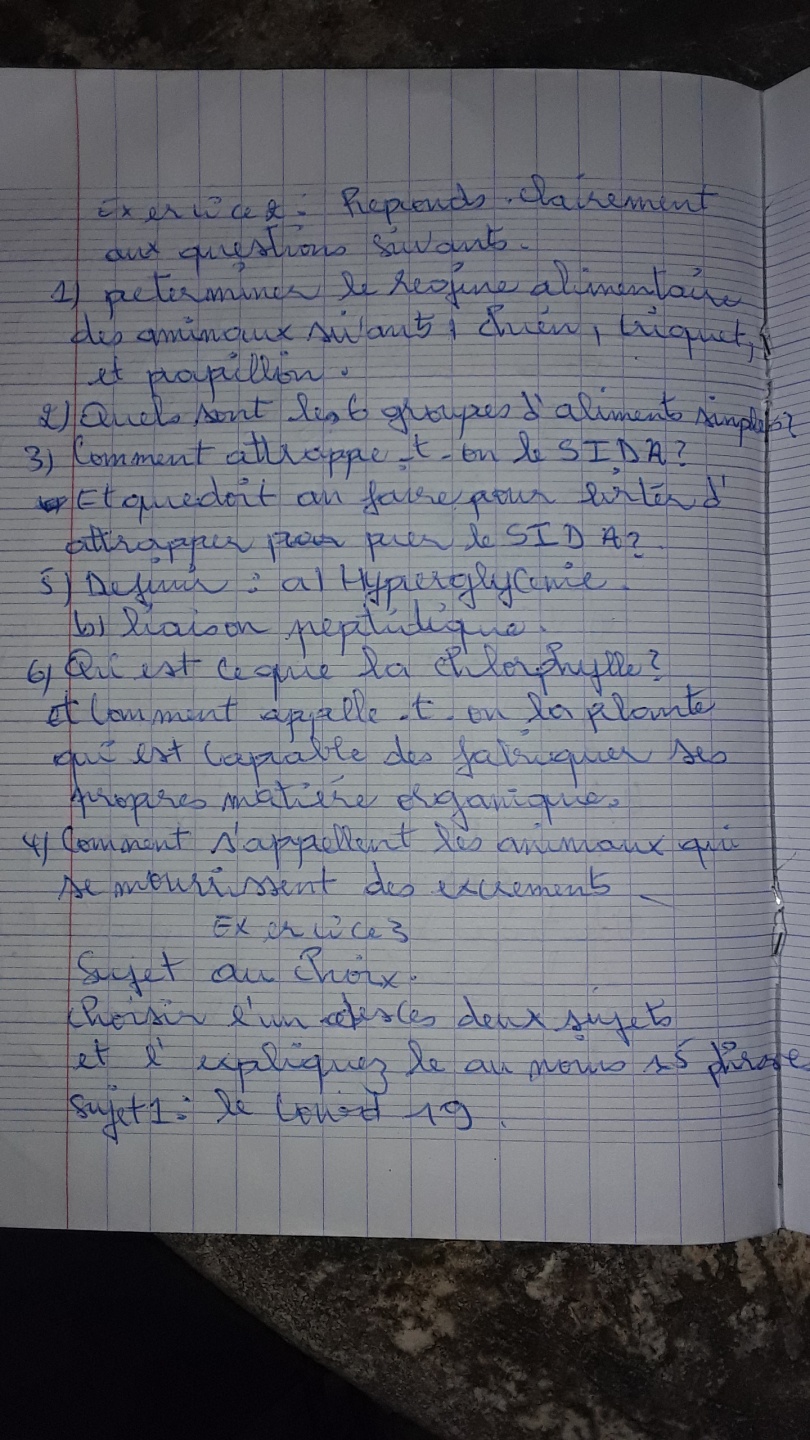 Exercice 2: Reponds clairement
aux questions suivants.
1) Determiner le regime alimentaire
des animaux suivants, chien, criquet,
et papillon.
2) Quels sont les 6 groupes d'aliments simples?
3) Comment attrappe-t-on le SIDA?
Et que doit on faire pour eviter d'
attrapper le SIDA?
5) Definir: a) Hyperglycemie.
b) liaison peptidique.
6) Qu'est ce que la chlorphylle?
Et Comment appelle-t-on la plante
qui est capable des fabriquer ses
propres matière organique.
4) Comment s'appellent les animaux qui
se nourissent des excrements
Exercice 3
Sujet au choix.
Choisir l'un des ces deux sujets
et l'expliquez le au moins 15 phrase
Sujet 1: le Covid 19.